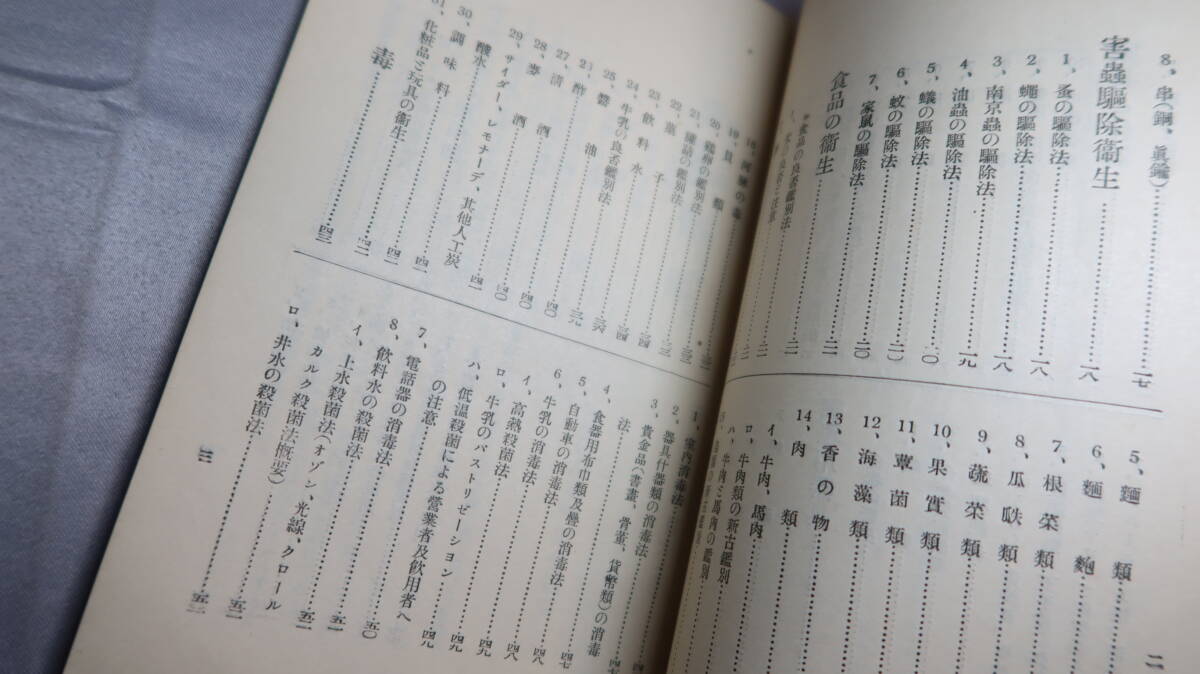 8、串(銅、眞鍮)……一七
害蟲驅除衞生……一八
1、蚤の驅除法……一八
2、蠅の驅除法……一八
3、南京蟲の驅除法……一八
4、油蟲の驅除法……一九
5、蟻の驅除法……二〇
6、蚊の驅除法……二〇
7、家鼠の驅除法……二〇
食品の衞生……二一
5、麵類
6、麵麭
7、根菜類
8、瓜呋類
9、蔬菜類
10、果實類
11、蕈菌類
12、海藻類
13、香の物
14、肉類
イ、牛肉、馬肉
ロ、牛肉類の新古鑑別
ハ、牛肉ミ馬肉の鑑別
二
19、貝類
20、鷄卵の鑑別法
21、罐詰の鑑別法
22、菓子
23、飮料水
24、牛乳の良否鑑別法
25、醬油
21、酢
27、淸酒
28、麥酒……四〇
29、サイダー、レモナーデ、其他人工炭
酸水……四一
30、調味料……四一
31、化粧品ミ玩具の衞生……四二
毒……四三
1、室內消毒法
2、器具什器類の消毒法
3、貴金品(書畫、骨董、貨幣類)の消毒
法
4、食器用布巾類及疊の消毒法
5、自動車の消毒法……四七
6、牛乳の消毒法……四八
イ、高熱殺菌法……四八
ロ、牛乳のパストリゼーション……四九
ハ、低溫殺菌による營業者及飮用者へ
の注意……四九
7、電話器の消毒法……四九
8、飮料水の殺菌法……五〇
イ、上水殺菌法……五一
カルク殺菌法(オゾン、光線、クロール
殺菌法槪要)……五一
ロ、井水の殺菌法……五二
三